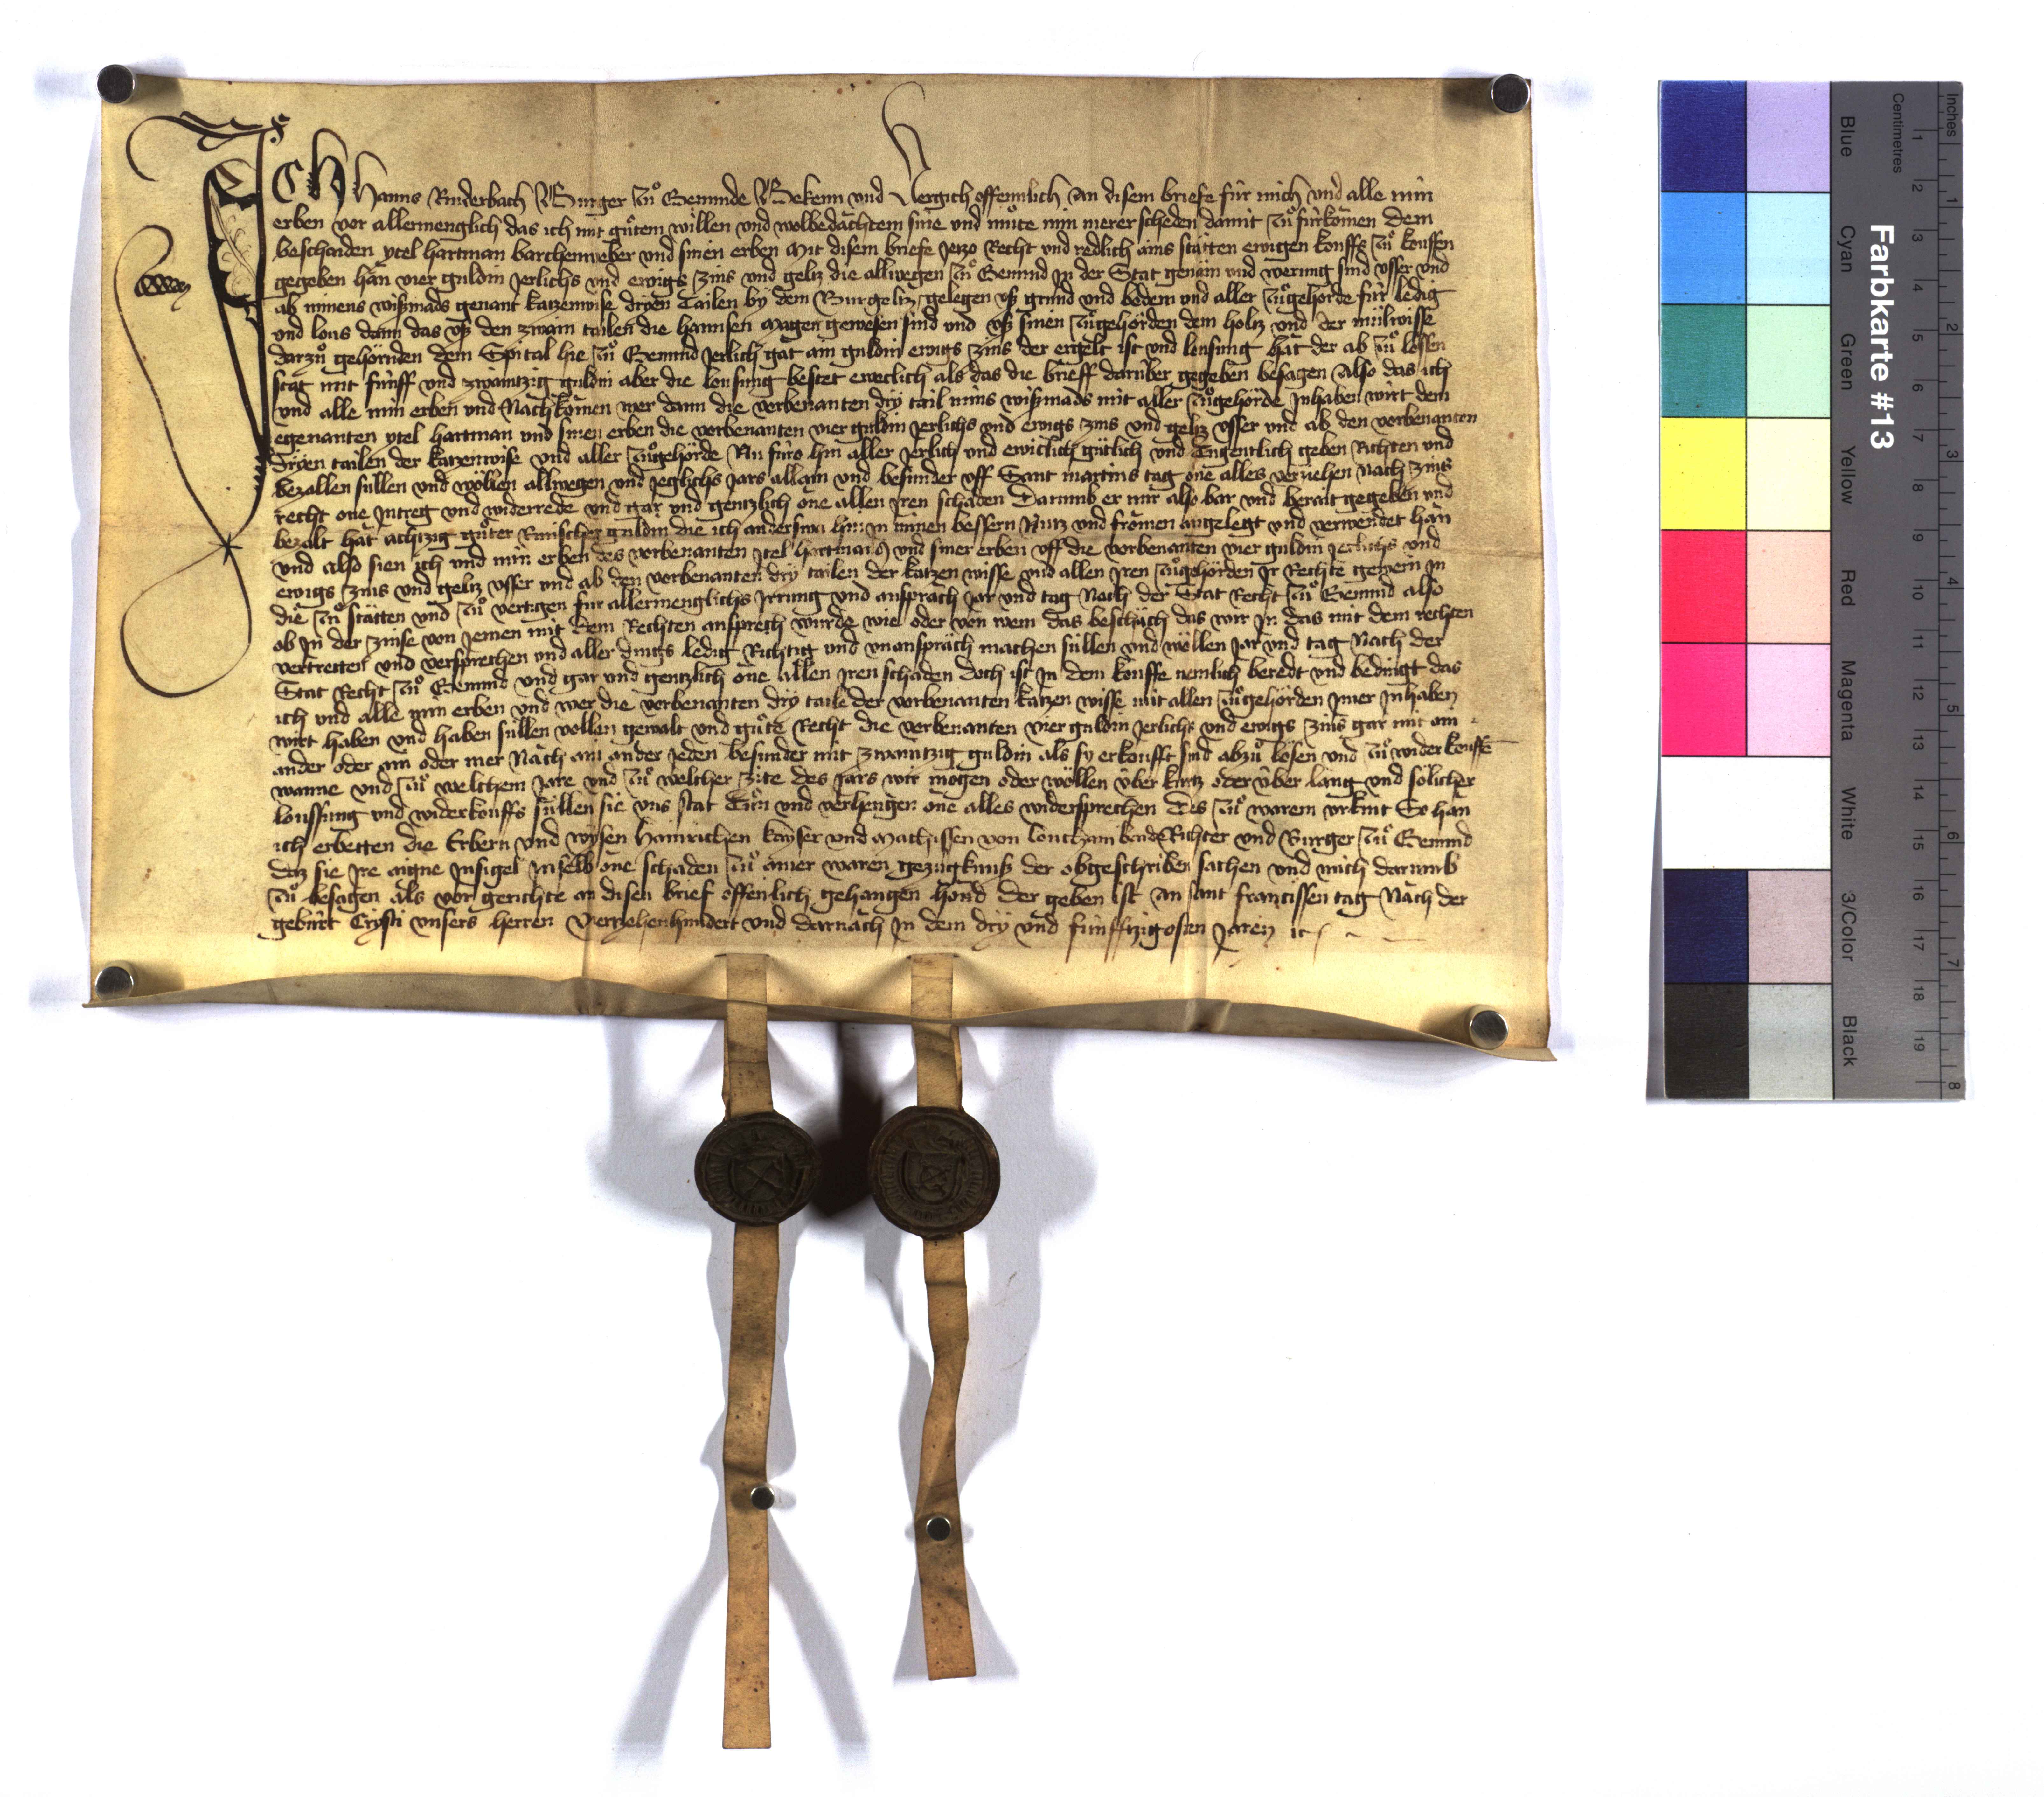 Ich Hanns Rinderbach Burger zů Gemunde Bekenn und Vergich offennlich An disem briefe für mich und alle min
erben vor allermenglich das ich mit gůtem willen und wolbedächtem sine und můte min merer scheden damit zů fürkomen Dem
beschaiden ytel hartman barchenweber und sinen erben Mit disem briefe Jetzo Recht und redlich ains stätten ewigen kouffs zů kouffen
gegeben hän vier guldin Jerlichs und ewigs zins und geltz die allwegen zů Gemund In der Stat genäm und werung sind usser und
ab minens wißmads genant katzenwise dryen tailen by dem Burgeltz gelegen uß grund und bodem und aller zůgehörde für ledig
und lous dann das uß den zwain tailen die hannsen Magen gewesen sind und uß sinen zůgehörden dem holtz und der mülwisse
darzů gehörnden dem Spital hie zů Gemund Jerlich gat ain guldin ewigs zins der ergelt ist und lousung hät der ab zů lössen
stat mit fünff und zwaintzig guldin aber die lousung bestet eweclich als das die brieff darüber gegeben besagen Also das ich
und alle min erben und Nachkomen wer dann die vorbenanten dry tail mins wißmads mit aller zůgehörde Inhaben wirt dem
egenanten ytel hartman und sinen erben die vorbenanten vier guldin Jerlichs und ewigs zins und geltz usser und ab den vorbenanten
dryen tailen der katzenwise und aller zůgehörde Nu füro hin aller Jerlich und ewiclich gütlich und Tugentlich geben Richten und
bezallen süllen und wöllen allwegen und Jeglichs Jars allain und besunder uff Sant martins tag one alles verziehen Nach zins
recht one Intreg und widerrede und gar und gentzlich one allen Iren schaden Darumb er mir also bar und berait gegeben und
bezalt hät achtzig gůter Rinischer guldin die ich anderswa hin in minen bessern Nutz und fromen angelegt und verwendet hän
und also sien ich und min erben des vorbenanten Jtel hartmans und siner erben uff die vorbenanten vier guldin Jerlichs und
ewigs zins und geltz usser und ab den vorbenanten dry tailen der katzen wisse und allen Iren zůgehörden Ir Rechte gewern In
die zů stätten und zů vertigen für allermenglichs Irrung und ansprach Jar und tag Nach der Stat Recht zů Gemund also
ob In der zinse von Jemen mit dem Rechten ansprech wurde wie oder von wem das beschäch das wir In das mit dem rechten
vertretten und versprechen und aller dings ledig Richtig und unanspräch machen süllen und wöllen Jar und tag Nach der
Stat Recht zů Gemund und gar und gentzlich one allen Iren schaden doch ist In dem kouffe nemlich beredt und bedingt das
ich und alle min erben und wer die vorbenanten dry taile der vorbenanten katzen wisse mit allen zůgehörden Imer Inhaben
wirt haben und haben süllen vollen gewalt und gůte Recht die vorbenanten vier guldin Jerlichs und ewigs zins gar mit ain
ander oder ain oder mer Näch ain ander Jeden besunder mit zwaintzig guldin als sy erkoufft sind abzů lösen und zů wider kouffe
wanne und zů welchem Jare und zů welcher zite des Jars wir mögen oder wöllen über kurtz oder über lang und sölicher
loussung und widerkouffs süllen sie uns stat Tůn und verhengen one alles widersprechen Des zů warem urkunt So hän
ich erbetten die Erbern und wysen Hainrichen kayser und Mathissen von Bede Richter und Burger zů Gemund
daz sie Ire aigne Insigel Inselb one schaden zů ainer waren gezugknuß der obgeschriben sachen und mich darumb
zů besagen als vor gerichte an disen brief offenlich gehangen hond Der geben ist An sant franciscen tag Näch der
gebürt Cristi unsers herren Vierzehenhundert und darnäch In dem dry und fünffzigosten Jaren ꝛc
Farbkarte #13
Centimetres
Inches
1 2 3 4 5 6 7 8 9 10 11 12 13 14 15 16 17 18 19
1 2 3 4 5 6 7 8
Blue
Cyan
Green
Yellow
Red
Magenta
White
3/Color
Black